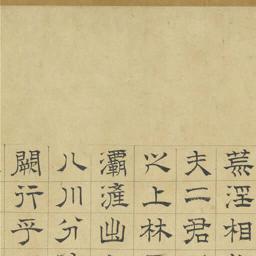 荒淫相
夫二君
之上林
灞滻出
八川分
闕行乎